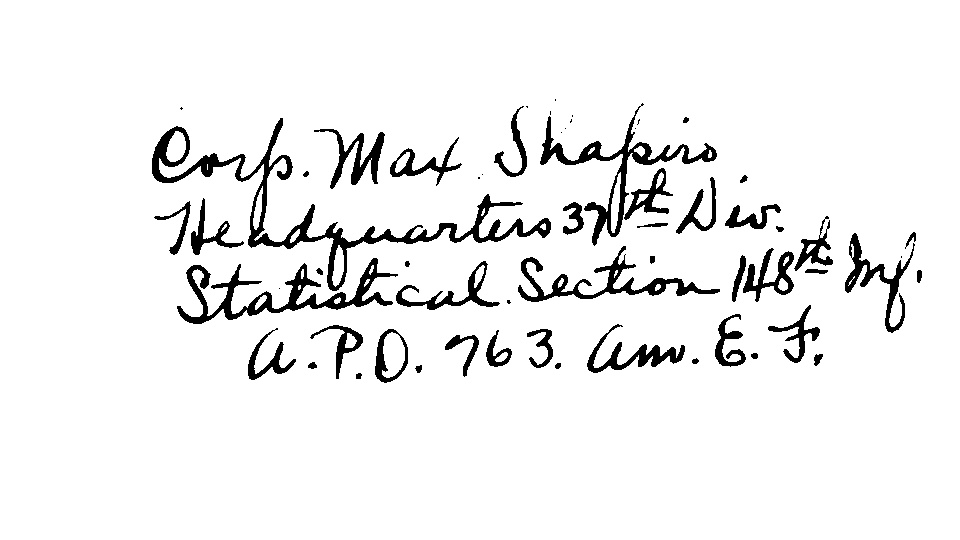 Corp. Max Shapiro
Headquarters 37th Div.
Statistical Section 148th Inf.
A.P.O. 763. Am. E. F.